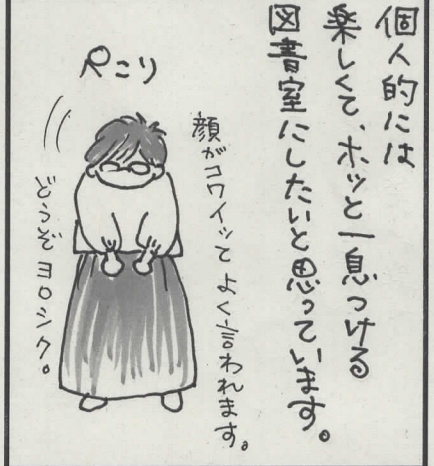 個人的には
楽しくて、ホッと一息つける
図書室にしたいと思っています。
ペこり
顔がコワイッてよく言われます。
どうぞヨロシク。